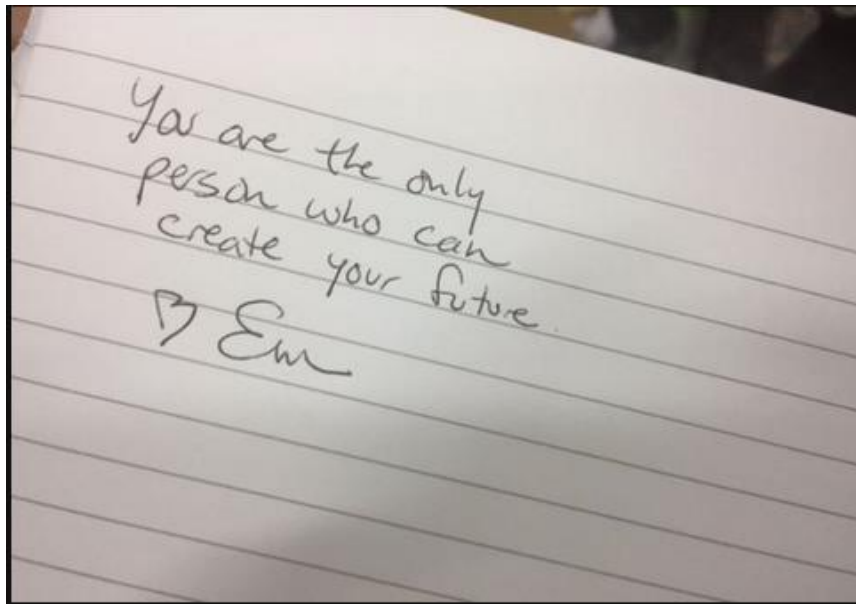 You are the only
person who can
create your future.
♡ Em